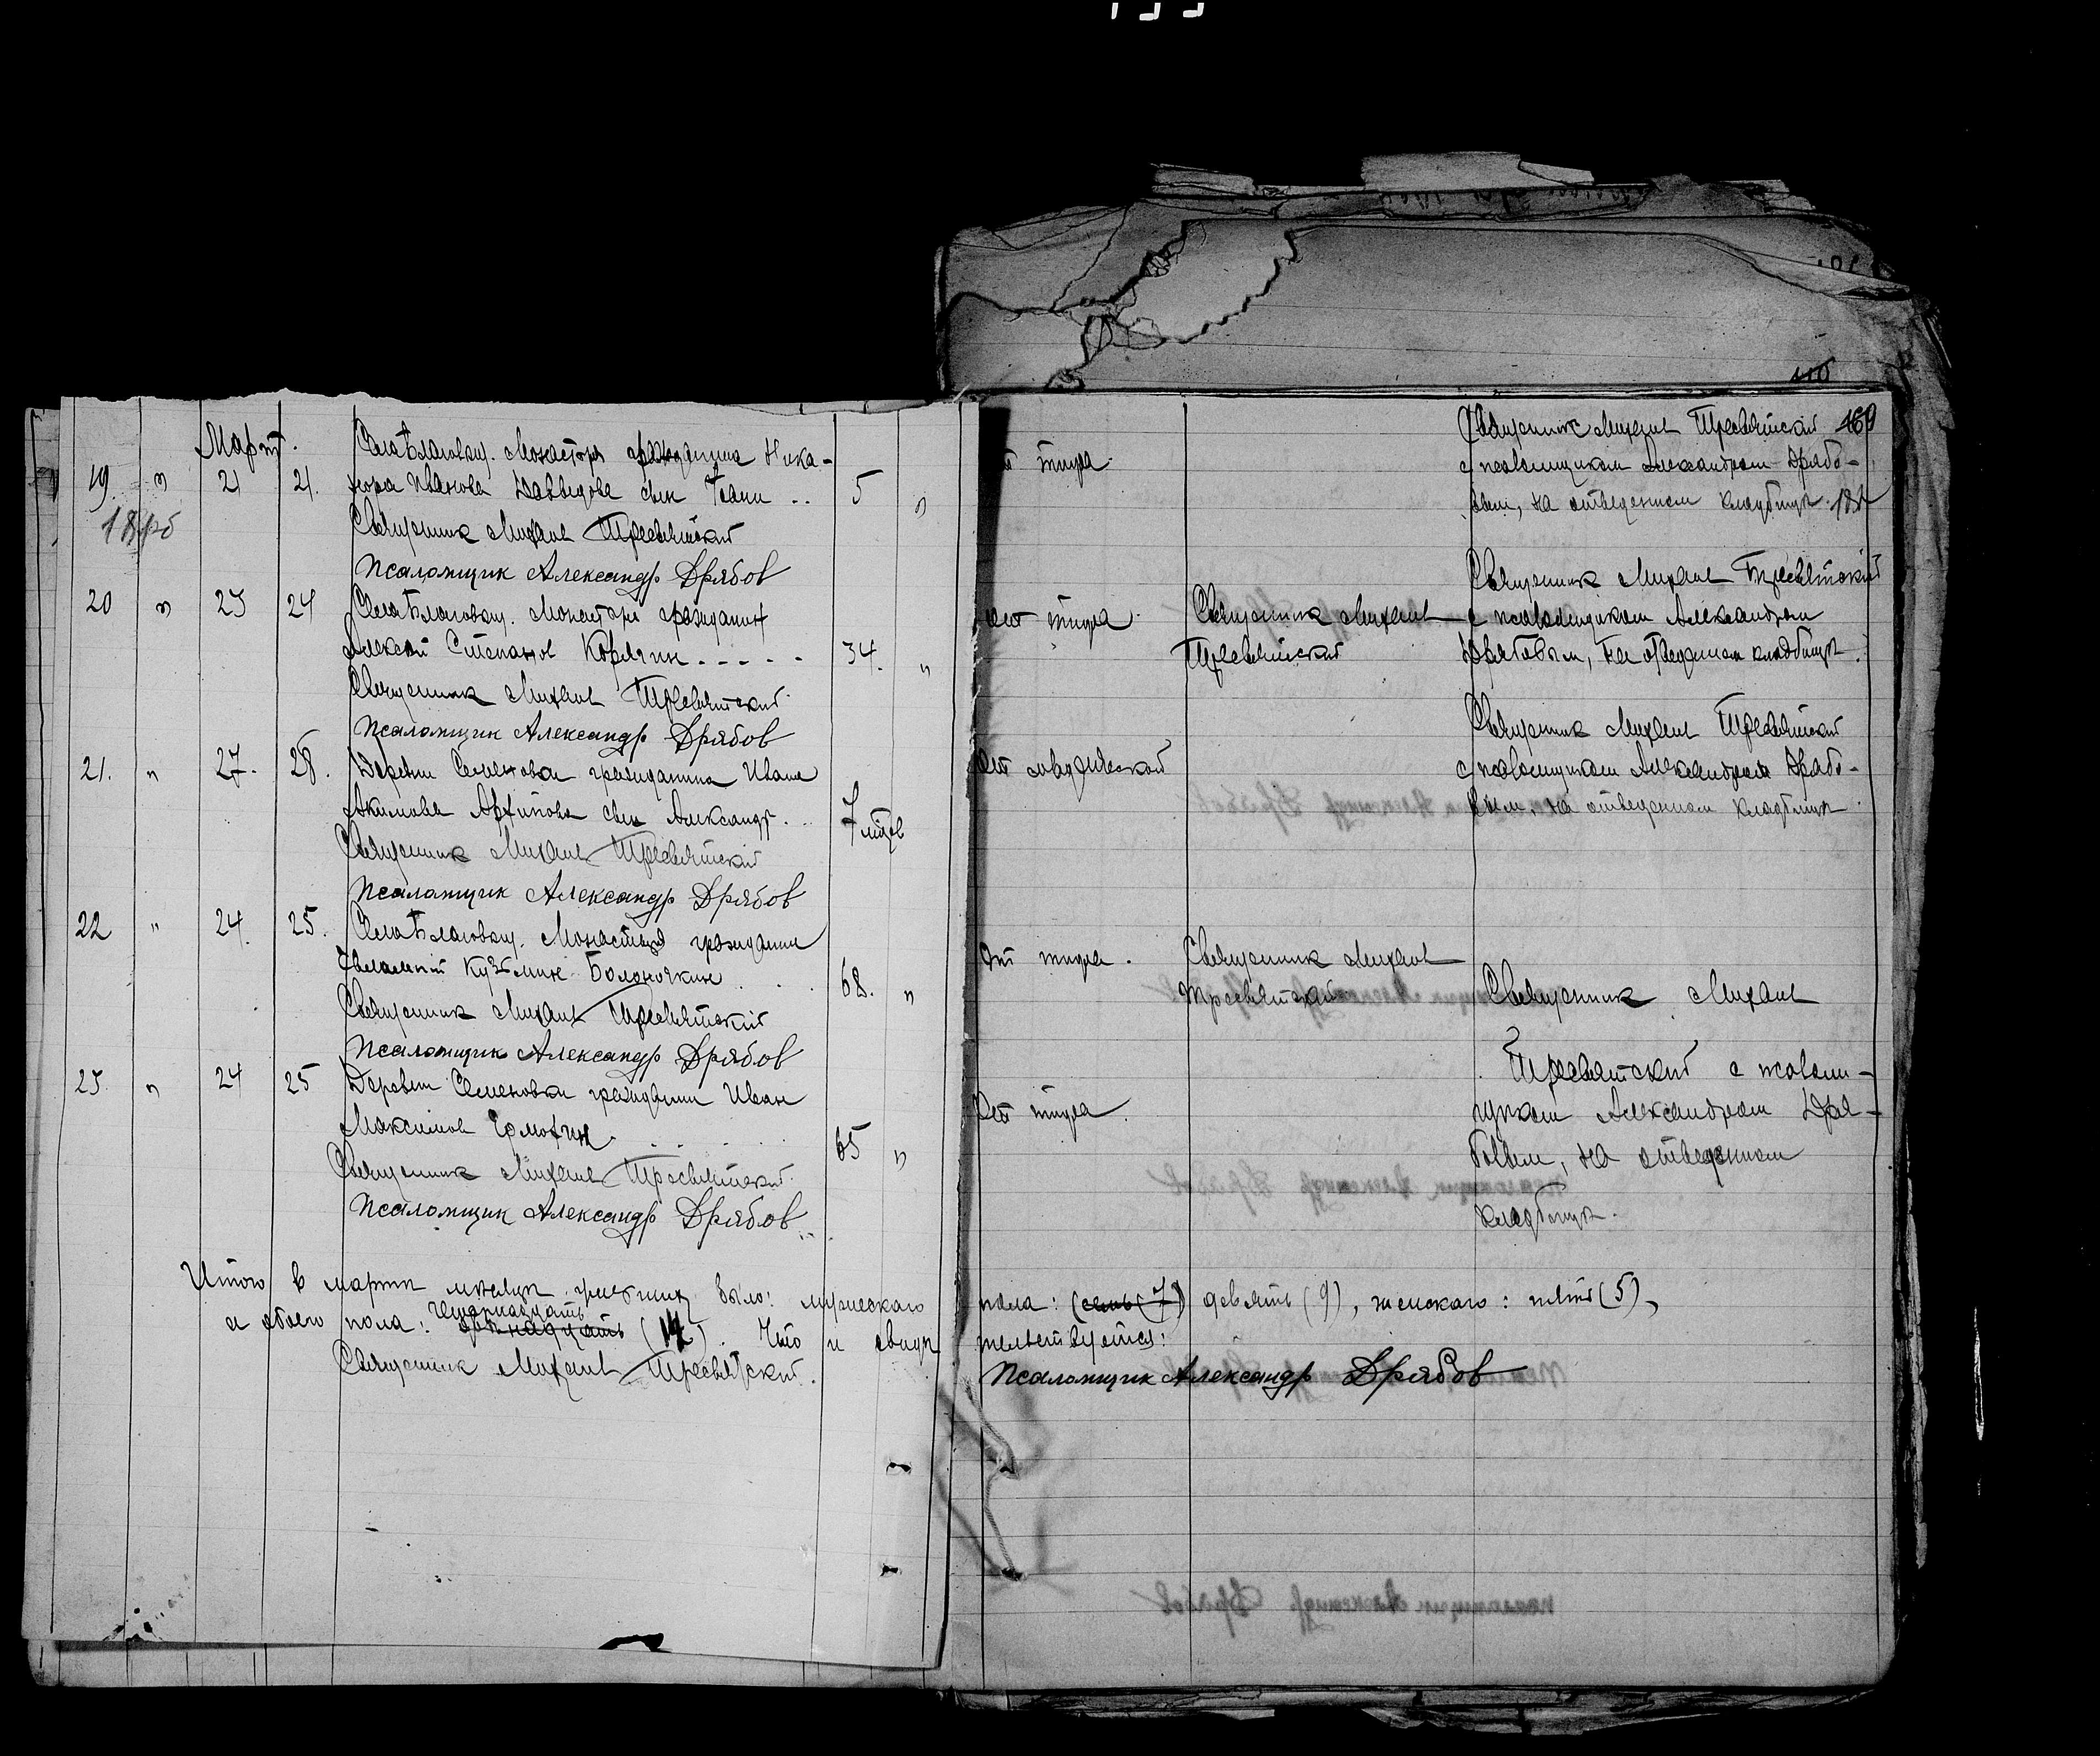 Март.
Села Благовещ. Монастыря гражданина Ника-
19 " 21 21. нора Иванова Давыдова сын Иоанн .. 5 "
Священник Михаил Тресвятский
Псаломщик Александр Дрябов
20 " 23 24 Села Благовещ. Монастыря гражданин
Алексей Степанов Корягин . . . . . 34. "
Священник Михаил Тресвятский
Псаломщик Александр Дрябов
21. " 27. 28. Деревни Семеновки гражданина Ивана
Акимова Архипова сын Александр. .. 7 мцев
Священник Михаил Тресвятский
Псаломщик Александр Дрябов
22 " 24. 25. Села Благовещ. Монастыря гражданин
Кузьмин Болоночкин . . . 68. "
Священник Михаил Тресвятский
Псаломщик Александр Дрябов
23. " 24 25 Деревни Семеновки гражданин Иван
Максимов Ермохин. . . . . 65 "
Священник Михаил Тресвятский
Псаломщик Александр Дрябов
Итого в марте месяце умерших было: мужескаго
четырнадцать
и обоего пола: (14). Что и свиде
Священник Михаил Тресвятский.
169
Священник Михаил Тресвятский
от тифа с псаломщиком Александром Дрябо-
вым, на отведенном кладбище.
Священник Михаил Тресвятский
от тифа. Священник Михаил с псаломщиком Александром
Тресвятский Дрябовым, на отведенном кладбище.
Священник Михаил Тресвятский
с псаломщиком Александром Дрябо-
вым, на отведенном кладбище
От тифа. Священник Михаил
Тресвятский Священник Михаил
Тресвятский с псалом-
От тифа. щиком Александром Дря-
бовым, на отведенном
кладбище.
пола: (семь (7)) девять (9), женскаго: пять (5),
тельствуется:
Псаломщик Александр Дрябов